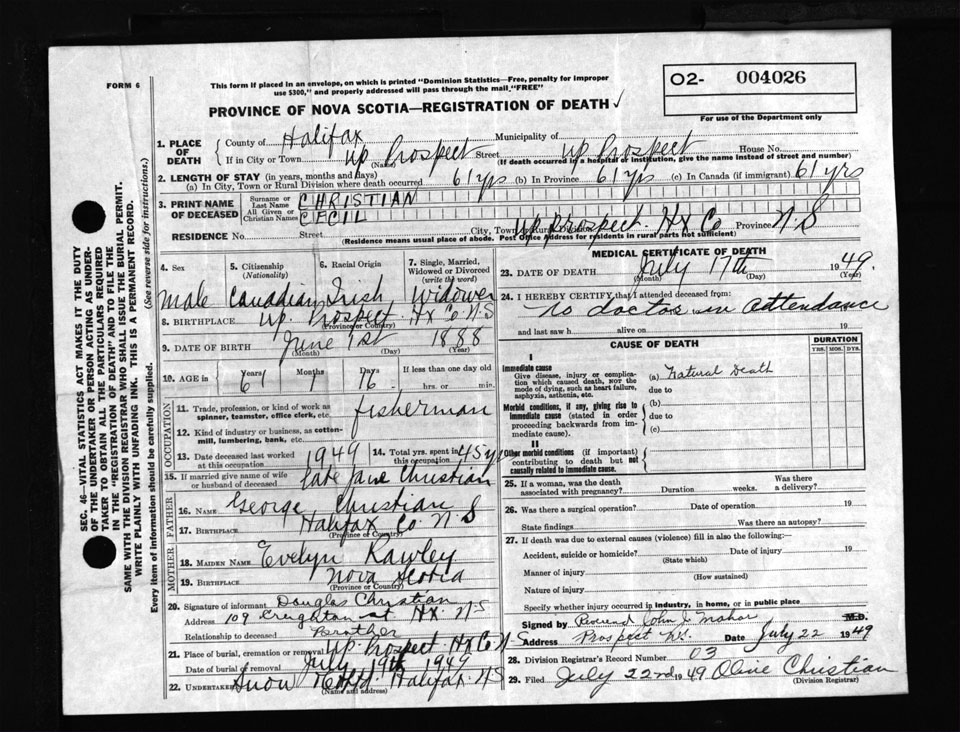 FORM 6
This form if placed in an envelope, on which is printed "Dominion Statistics—Free, penalty for improper
use $300," and properly addressed will pass through the mail "FREE"
O2- 004026
For use of the Department only
PROVINCE OF NOVA SCOTIA—REGISTRATION OF DEATH ✓
1. PLACE OF DEATH { County of Halifax Municipality of
If in City or Town Up Prospect (Name) Street Up Prospect House No.
(If death occurred in a hospital or institution, give the name instead of street and number)
2. LENGTH OF STAY (in years, months and days)
(a) In City, Town or Rural Division where death occurred 61 yrs (b) In Province 61 yrs (c) In Canada (if immigrant) 61 yrs
3. PRINT NAME OF DECEASED { Surname or Last Name CHRISTIAN
All Given or Christian Names CECIL
RESIDENCE No. Street City, Town or Rural Division Up Prospect. Hx Co Province N.S
(Residence means usual place of abode. Post Office Address for residents in rural parts not sufficient)
4. Sex Male
5. Citizenship (Nationality) Canadian
6. Racial Origin Irish
7. Single, Married, Widowed or Divorced (write the word) Widower
8. BIRTHPLACE Up. Prospect. Hx Co N.S
(Province or Country)
9. DATE OF BIRTH June 1st 1888
(Month) (Day) (Year)
10. AGE in { Years 61 Months 1 Days 16 If less than one day old
hrs. or min.
OCCUPATION
11. Trade, profession, or kind of work as
spinner, teamster, office clerk, etc. fisherman
12. Kind of industry or business, as cotton-
mill, lumbering, bank, etc.
13. Date deceased last worked
at this occupation 1949
14. Total yrs. spent in
this occupation 45 yrs
15. If married give name of wife
or husband of deceased late Jane Christian
FATHER
16. NAME George Christian
17. BIRTHPLACE Halifax Co N.S
(Province or Country)
MOTHER
18. MAIDEN NAME Evelyn Rawley
19. BIRTHPLACE Nova Scotia
(Province or Country)
20. Signature of informant Douglas Christian
Address 109 Creighton st Hx. N.S
Relationship to deceased Brother
21. Place of burial, cremation or removal Up. Prospect Hx Co N.S
Date of burial or removal July 19th 1949
22. Undertaker Snow Halifax. N.S
(Name and address)
MEDICAL CERTIFICATE OF DEATH
23. DATE OF DEATH July 17th 1949.
(Month) (Day) (Year)
24. I HEREBY CERTIFY that I attended deceased from:
no doctor in attendance
and last saw h alive on 19
CAUSE OF DEATH
DURATION
YRS. MOS. DYS.
I
Immediate cause
Give disease, injury or complica-
tion which caused death, NOT the
mode of dying, such as heart failure,
asphyxia, asthenia, etc.
(a) Natural Death
due to
Morbid conditions, if any, giving rise to
immediate cause (stated in order
proceeding backwards from im-
mediate cause).
(b)
due to
(c)
II
Other morbid conditions (if important)
contributing to death but not
causally related to immediate cause.
25. If a woman, was the death
associated with pregnancy? Duration weeks. Was there
a delivery?
26. Was there a surgical operation? Date of operation 19
State findings Was there an autopsy?
27. If death was due to external causes (violence) fill in also the following:—
Accident, suicide or homicide? Date of injury 19
(State which)
Manner of injury
(How sustained)
Nature of injury
Specify whether injury occurred in industry, in home, or in public place
Signed by Reverend John L Mahar M.D.
Address Prospect N.S. Date July 22 1949
28. Division Registrar's Record Number 03
29. Filed July 22nd 1949 Olive Christian
(Division Registrar)
SEC. 46—VITAL STATISTICS ACT MAKES IT THE DUTY
OF THE UNDERTAKER OR PERSON ACTING AS UNDER-
TAKER TO OBTAIN ALL THE PARTICULARS REQUIRED
IN THE "REGISTRATION OF DEATH" AND TO FILE THE
SAME WITH THE DIVISION REGISTRAR WHO SHALL ISSUE THE BURIAL PERMIT.
WRITE PLAINLY WITH UNFADING INK. THIS IS A PERMANENT RECORD.
Every item of information should be carefully supplied. (See reverse side for instructions.)